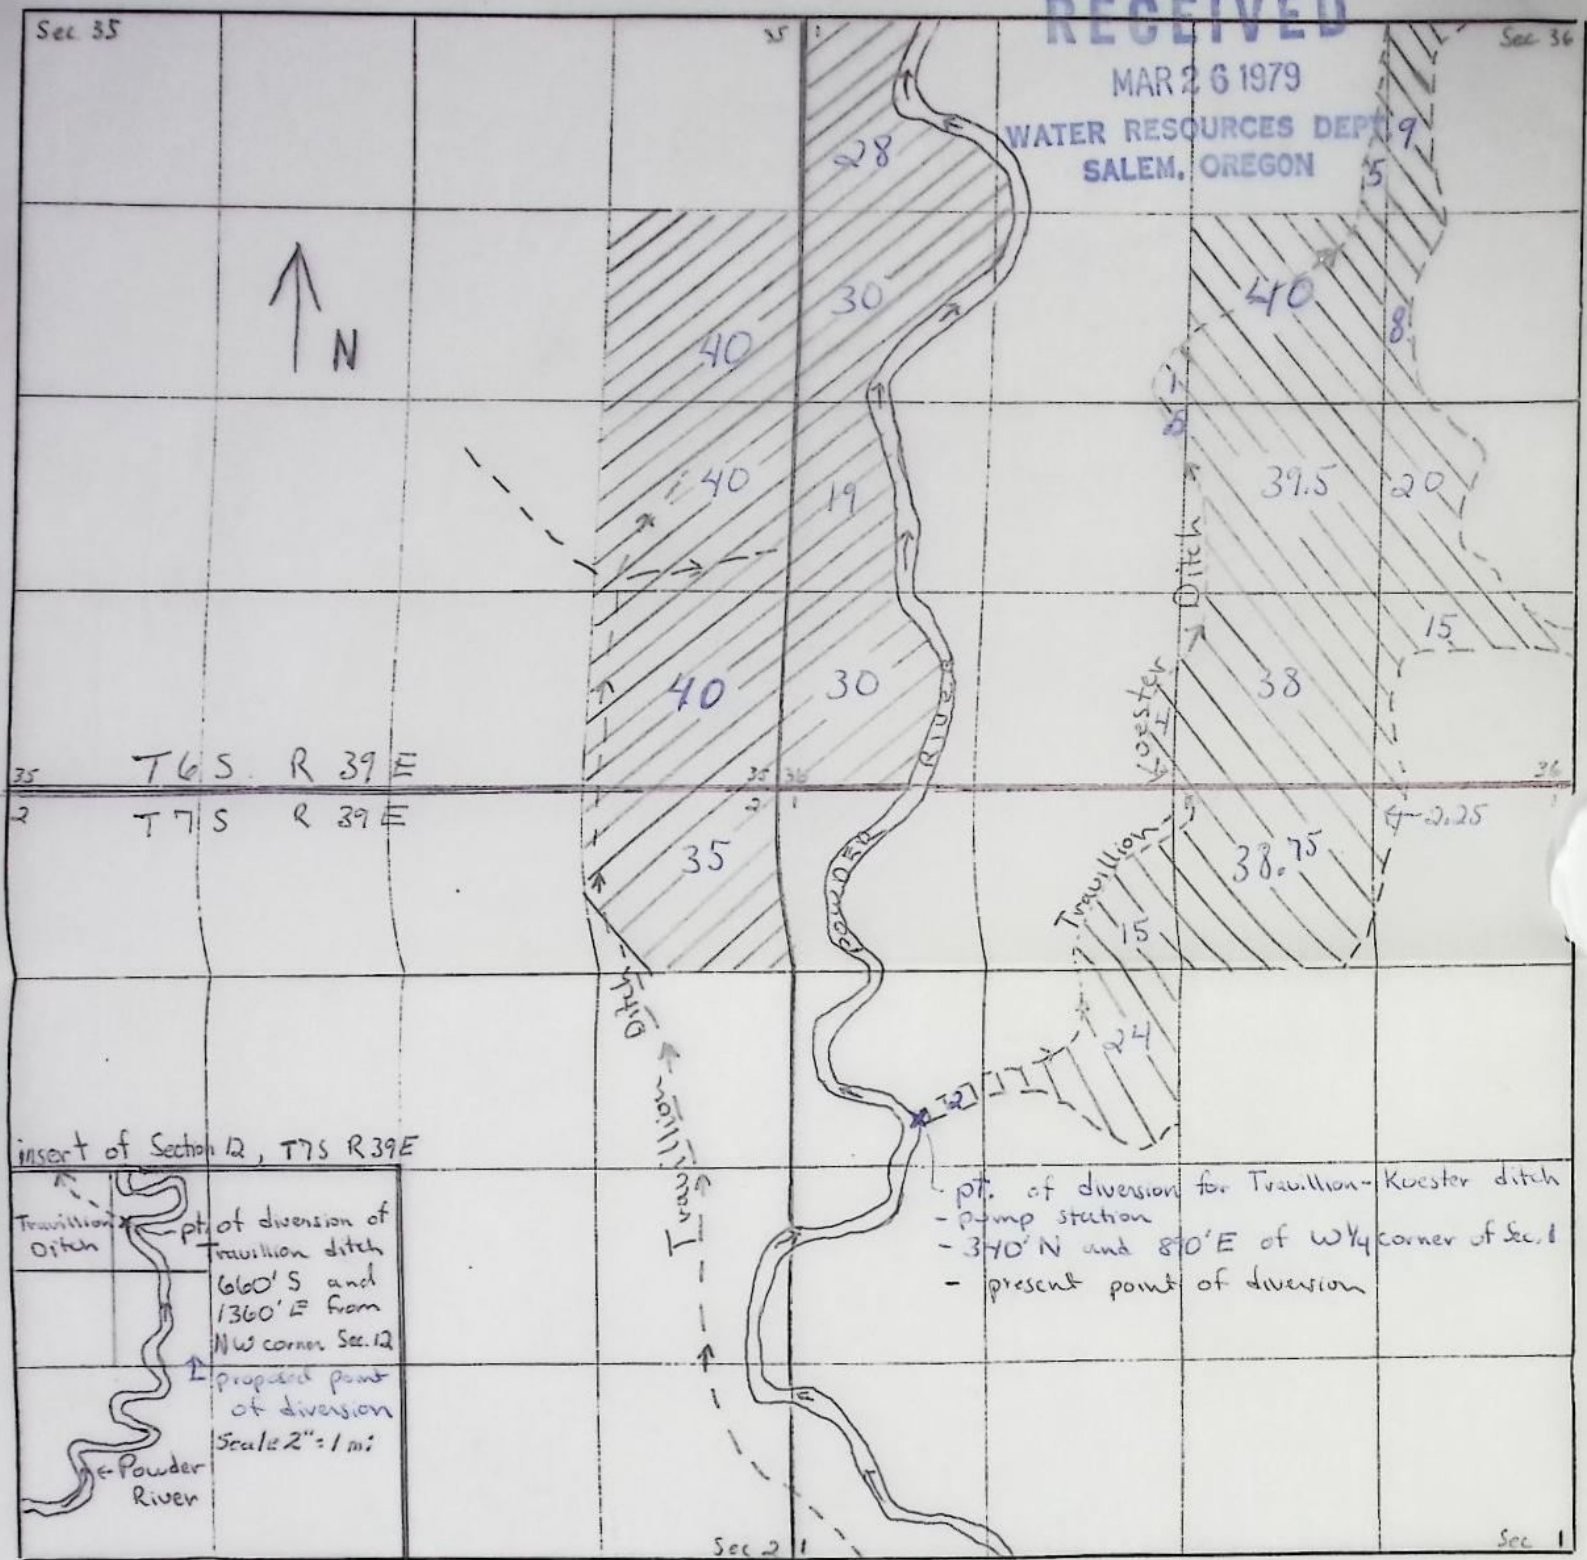 Sec 35
35
1
RECEIVED
MAR 26 1979
WATER RESOURCES DEPT
SALEM, OREGON
Sec 36
28
9
5
N
40
30
40
8
40
19
39.5
20
Ditch
15
40
30
38
Koester
RIVER
T 6 S R 39 E
35
35 36
36
2
T 7 S R 39 E
2 1
1
←2.25
35
POWDER
Travillion
38.75
15
Ditch
24
2
Travillion
insert of Section 12, T7S R39E
Travillion
Ditch
pt. of diversion of
Travillion ditch
660' S and
1360' E from
NW corner Sec. 12
proposed point
of diversion
Scale 2" = 1 mi
←Powder
River
pt. of diversion for Travillion-Koester ditch
- pump station
- 340' N and 890' E of W 1/4 corner of Sec. 1
- present point of diversion
Sec 2
1
Sec 1